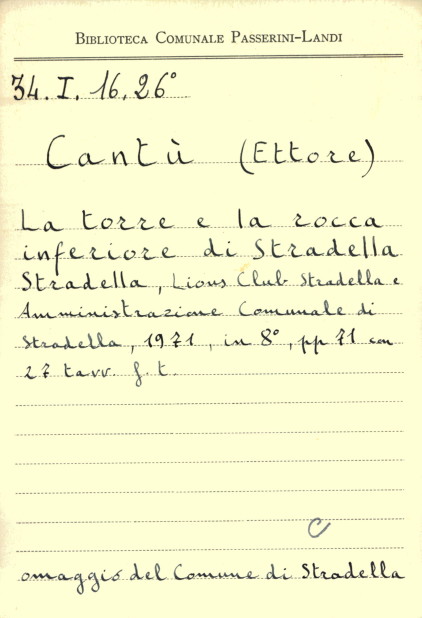 BIBLIOTECA COMUNALE PASSERINI-LANDI
34. I. 16. 26°
Cantù (Ettore)
La torre e la rocca
inferiore di Stradella
Stradella, Lions Club Stradella e
Amministrazione Comunale di
Stradella, 1971, in 8°, pp 71 con
27 tavv. f. t.
C
omaggio del Comune di Stradella